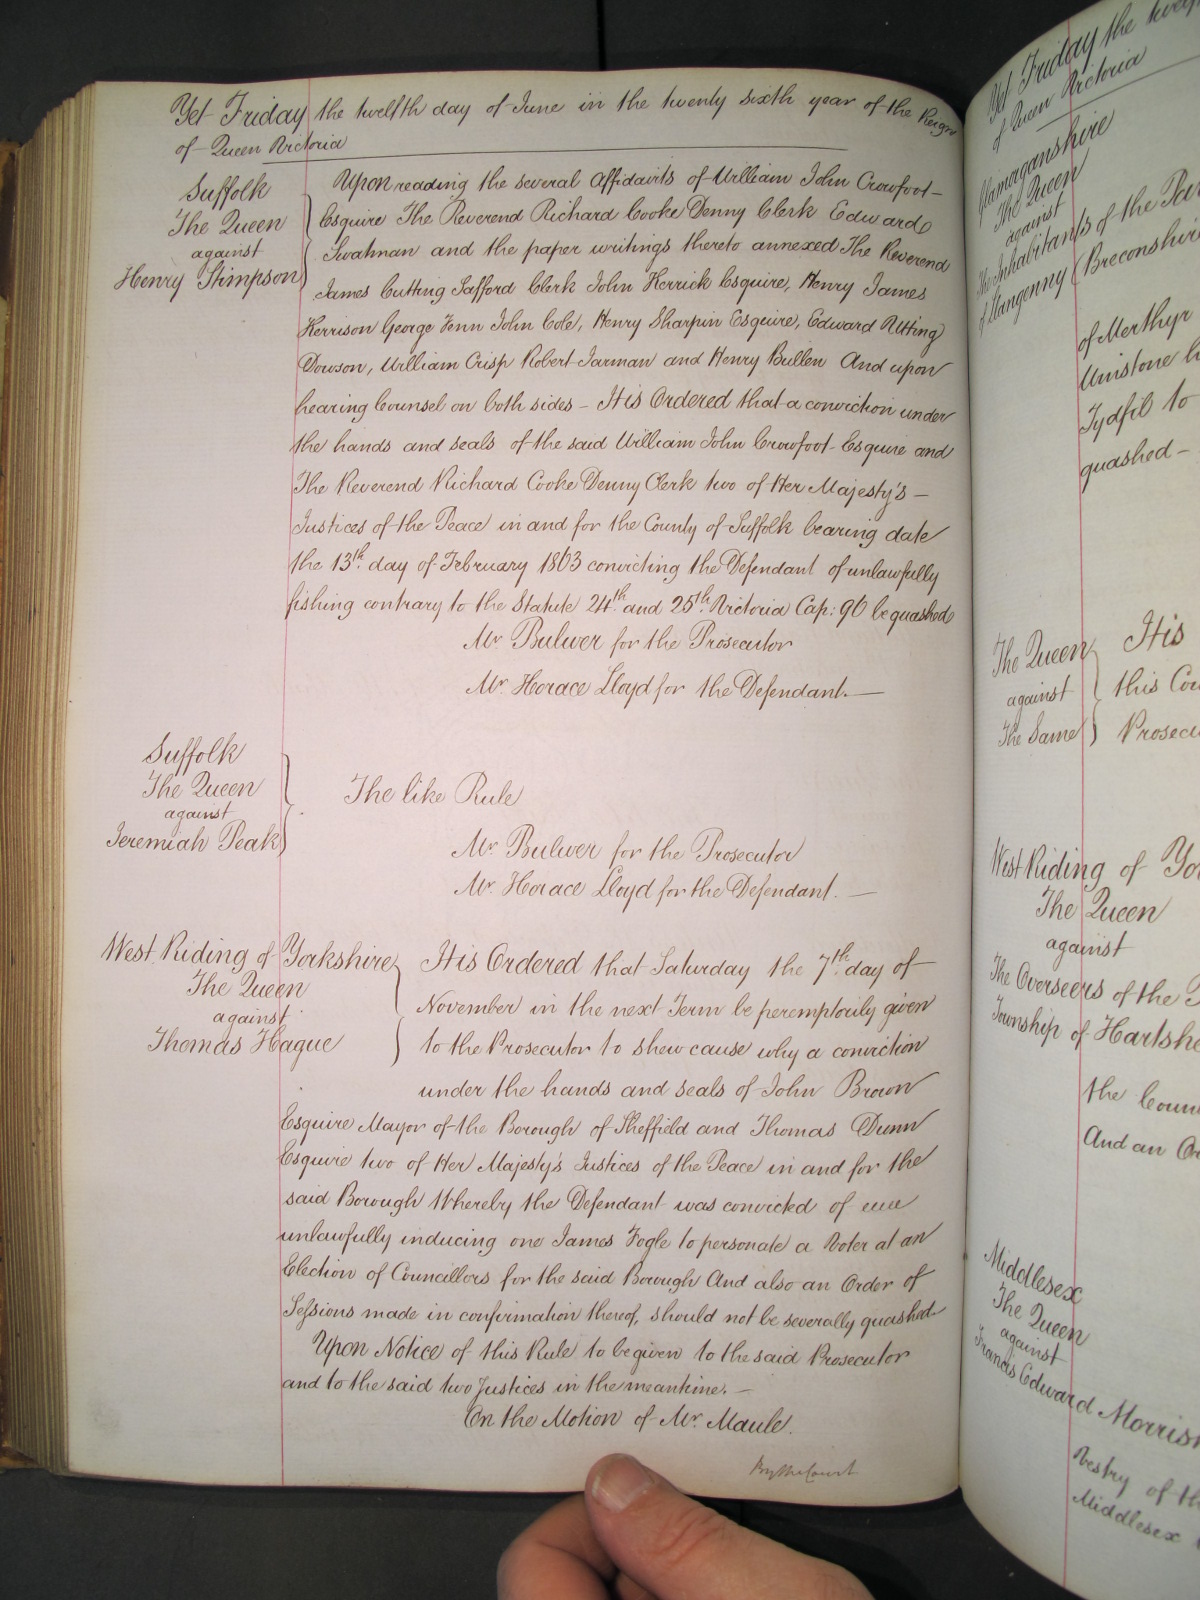 Yet Friday the twelfth day of June in the twenty sixth year of the Reign
of Queen Victoria
Suffolk
The Queen
against
Henry Stimpson
Upon reading the several Affidavits of William John Crowfoot
Esquire The Reverend Richard Cooke Denny Clerk Edward
Swatman and the paper writings thereto annexed The Reverend
James Cutting Safford Clerk John Kerrick Esquire, Henry James
Kerrison George Fenn John Cole, Henry Sharpin Esquire, Edward Utting
Dowson, William Crisp Robert Jarman and Henry Bullen And upon
hearing Counsel on both sides – It is Ordered that a conviction under
the hands and seals of the said William John Crowfoot Esquire and
The Reverend Richard Cooke Denny Clerk two of Her Majesty's –
Justices of the Peace in and for the County of Suffolk bearing date
the 13th day of February 1863 convicting the Defendant of unlawfully
fishing contrary to the Statute 24th and 25th Victoria Cap: 96 be quashed
Mr Bulwer for the Prosecutor
Mr Horace Lloyd for the Defendant. —
Suffolk
The Queen
against
Jeremiah Peak
The like Rule
Mr Bulwer for the Prosecutor
Mr. Horace Lloyd for the Defendant. —
West Riding of Yorkshire
The Queen
against
Thomas Hague
It is Ordered that Saturday the 7th day of
November in the next Term be peremptorily given
to the Prosecutor to shew cause why a conviction
under the hands and seals of John Brown
Esquire Mayor of the Borough of Sheffield and Thomas Dunn
Esquire two of Her Majesty's Justices of the Peace in and for the
said Borough Whereby the Defendant was convicted of
unlawfully inducing one James Fogle to personate a Voter at an
Election of Councillors for the said Borough And also an Order of
Sessions made in confirmation thereof, should not be severally quashed
Upon Notice of this Rule to be given to the said Prosecutor
and to the said two Justices in the meantime. –
On the Motion of Mr. Maule.
By the Court
Yet Friday the
of Queen Victoria
Glamorganshire
The Queen
against
The Inhabitants of the
of Llangenny (Breconshire
of Merthyr
Tydfil to
quashed –
The Queen
against
The Same
It is
this
West Riding of
The Queen
against
The Overseers of the
Township of
the
And an
Middlesex
The Queen
against
Francis Edward
Vestry of
Middlesex